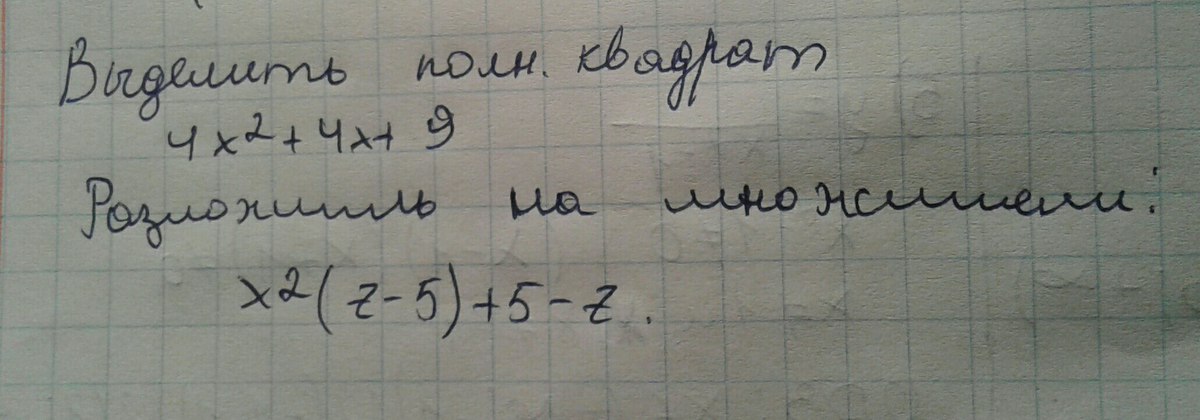 Выделить полн. квадрат
4x2+4x+9
Разложить на множители:
x2(z-5)+5-z.